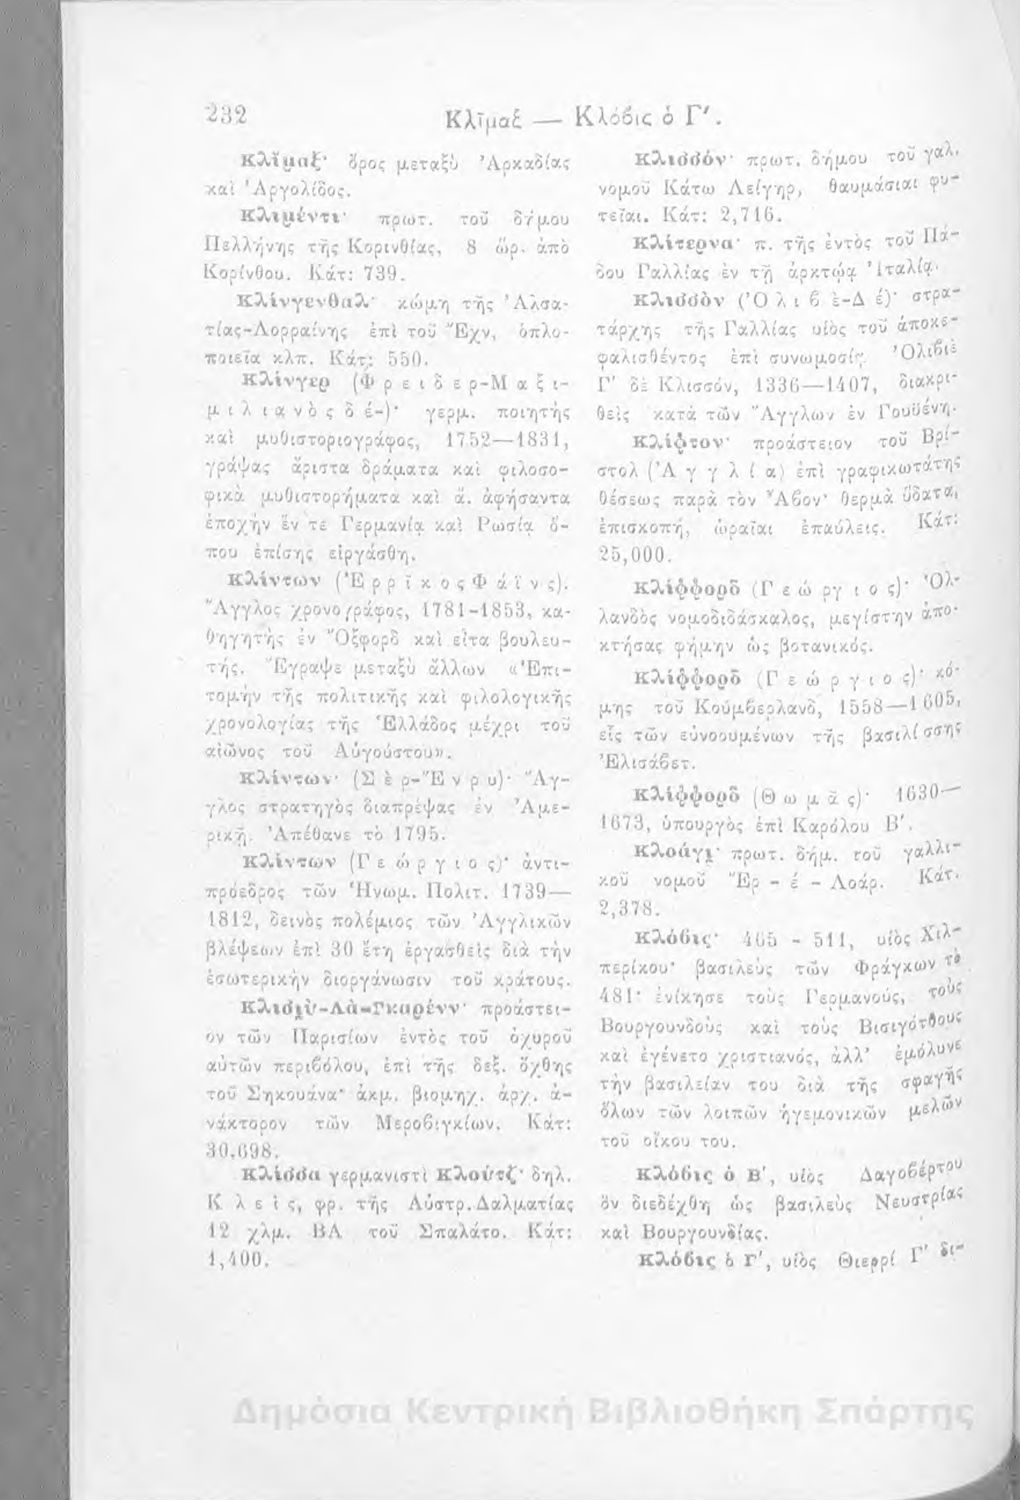 232
Κλῖμαξ — Κλόβις ὁ Γ'.
Κλῖμαξ· ὄρος μεταξὺ Ἀρκαδίας
καὶ Ἀργολίδος.
Κλιμέντι· πρωτ. τοῦ δήμου
Πελλήνης τῆς Κορινθίας, 8 ὥρ. ἀπὸ
Κορίνθου. Κάτ: 739.
Κλίνγενθαλ· κώμη τῆς Ἀλσα-
τίας-Λορραίνης ἐπὶ τοῦ Ἔχν, ὁπλο-
ποιεῖα κλπ. Κάτ: 550.
Κλίνγερ (Φρειδερ-Μαξι-
μιλιανὸς δέ-)· γερμ. ποιητὴς
καὶ μυθιστοριογράφος, 1752—1831,
γράψας ἄριστα δράματα καὶ φιλοσο-
φικὰ μυθιστορήματα καὶ ἄ. ἀφήσαντα
ἐποχὴν ἔν τε Γερμανίᾳ καὶ Ρωσίᾳ ὅ-
που ἐπίσης εἰργάσθη.
Κλίντων (Ἐρρῖκος Φάϊνς).
Ἄγγλος χρονογράφος, 1781-1853, κα-
θηγητὴς ἐν Ὀξφορδ καὶ εἶτα βουλευ-
τής. Ἔγραψε μεταξὺ ἄλλων «Ἐπι-
τομὴν τῆς πολιτικῆς καὶ φιλολογικῆς
χρονολογίας τῆς Ἑλλάδος μέχρι τοῦ
αἰῶνος τοῦ Αὐγούστου».
Κλίντων· (Σὲρ-Ἔνρυ)· Ἄγ-
γλος στρατηγὸς διαπρέψας ἐν Ἀμε-
ρικῇ. Ἀπέθανε τὸ 1795.
Κλίντων (Γεώργιος)· ἀντι-
πρόεδρος τῶν Ἡνωμ. Πολιτ. 1739—
1812, δεινὸς πολέμιος τῶν Ἀγγλικῶν
βλέψεων ἐπὶ 30 ἔτη ἐργασθεὶς διὰ τὴν
ἐσωτερικὴν διοργάνωσιν τοῦ κράτους.
Κλισὺ-Λὰ-Γκαρένν· προάστει-
ον τῶν Παρισίων ἐντὸς τοῦ ὀχυροῦ
αὐτῶν περιβόλου, ἐπὶ τῆς δεξ. ὄχθης
τοῦ Σηκουάνα· ἀκμ. βιομηχ. ἀρχ. ἀ-
νάκτορον τῶν Μεροβιγκίων. Κάτ:
30,698.
Κλίσσα γερμανιστὶ Κλούτζ· δηλ.
Κλεὶς, φρ. τῆς Αὐστρ. Δαλματίας
12 χλμ. ΒΑ τοῦ Σπαλάτο. Κάτ:
1,400.
Κλισσόν· πρωτ. δήμου τοῦ γαλ.
νομοῦ Κάτω Λείγηρ, θαυμάσιαι φυ-
τεῖαι. Κάτ: 2,716.
Κλίτερνα· π. τῆς ἐντὸς τοῦ Πά-
δου Γαλλίας ἐν τῇ ἀρκτῴᾳ Ἰταλίᾳ.
Κλισσὸν (Ὀλιβὲ-Δέ)· στρα-
τάρχης τῆς Γαλλίας υἱὸς τοῦ ἀποκε-
φαλισθέντος ἐπὶ συνωμοσίᾳ. Ὀλιβιὲ
Γ' δὲ Κλισσόν, 1336—1407, διακρι-
θεὶς κατὰ τῶν Ἄγγλων ἐν Γουϋένῃ.
Κλίφτον· προάστειον τοῦ Βρί-
στολ (Ἀγγλία) ἐπὶ γραφικωτάτης
θέσεως παρὰ τὸν Ἄβον· θερμὰ ὕδατα,
ἐπισκοπή, ὡραῖαι ἐπαύλεις. Κάτ:
25,000.
Κλίφφορδ (Γεώργιος)· Ὀλ-
λανδὸς νομοδιδάσκαλος, μεγίστην ἀπο-
κτήσας φήμην ὡς βοτανικός.
Κλίφφορδ (Γεώργιος)· κό-
μης τοῦ Κούμβερλανδ, 1558—1605,
εἷς τῶν εὐνοουμένων τῆς βασιλίσσης
Ἐλισάβετ.
Κλίφφορδ (Θωμᾶς)· 1630—
1673, ὑπουργὸς ἐπὶ Καρόλου Β'.
Κλοάγι· πρωτ. δήμ. τοῦ γαλλι-
κοῦ νομοῦ Ἔρ-έ-Λοάρ. Κάτ.
2,378.
Κλόβις· 465 - 511, υἱὸς Χιλ-
περίκου· βασιλεὺς τῶν Φράγκων τὸ
481· ἐνίκησε τοὺς Γερμανούς, τοὺς
Βουργουνδοὺς καὶ τοὺς Βισιγότθους
καὶ ἐγένετο χριστιανός, ἀλλ' ἐμόλυνε
τὴν βασιλείαν του διὰ τῆς σφαγῆς
ὅλων τῶν λοιπῶν ἡγεμονικῶν μελῶν
τοῦ οἴκου του.
Κλόβις ὁ Β', υἱὸς Δαγοβέρτου
ὃν διεδέχθη ὡς βασιλεὺς Νευστρίας
καὶ Βουργουνδίας.
Κλόβις ὁ Γ', υἱὸς Θιερρὶ Γ' δι-
Δημόσια Κεντρική Βιβλιοθήκη Σπάρτης